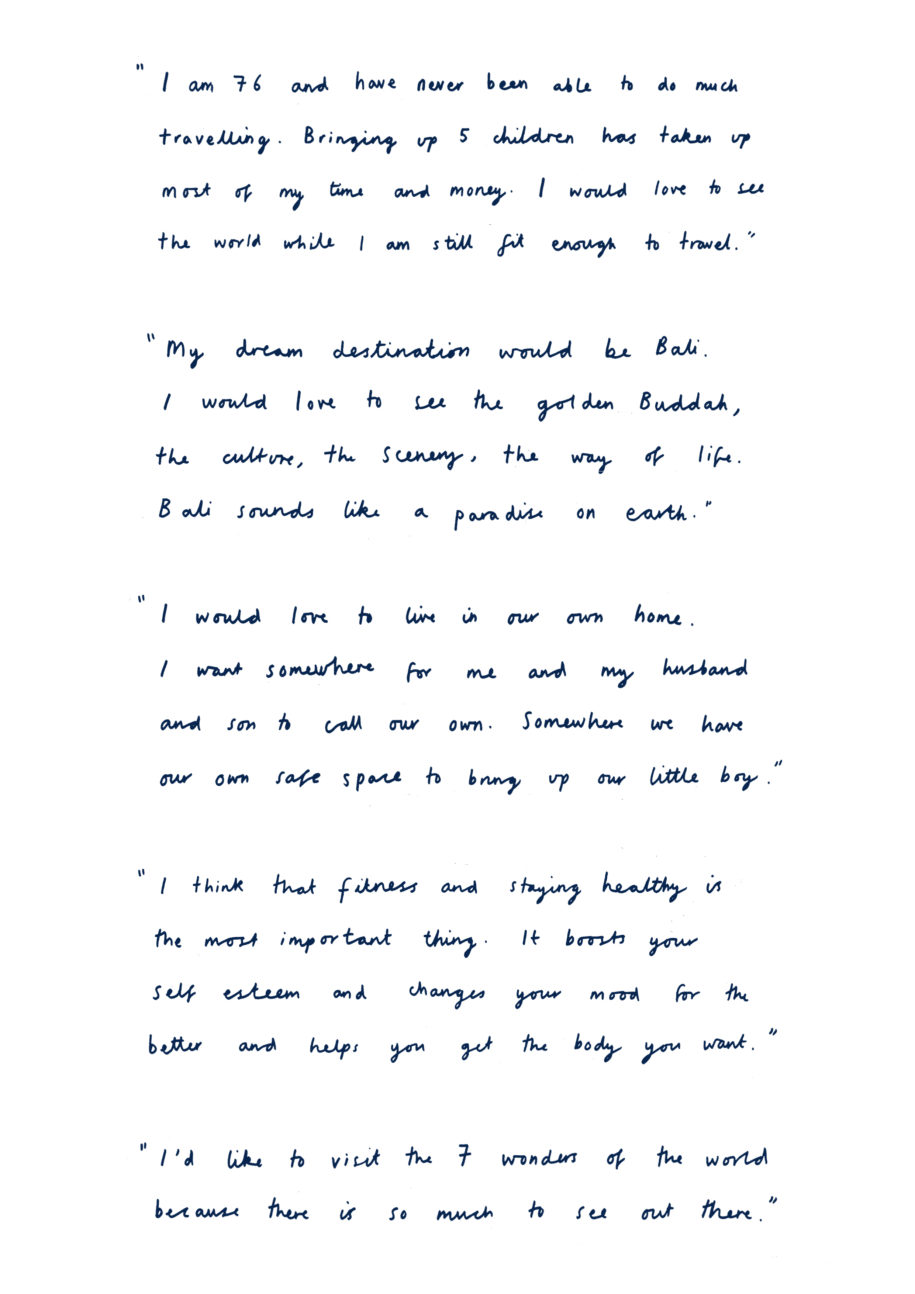 "I am 76 and have never been able to do much
travelling. Bringing up 5 children has taken up
most of my time and money. I would love to see
the world while I am still fit enough to travel."
"My dream destination would be Bali.
I would love to see the golden Buddah,
the culture, the scenery, the way of life.
Bali sounds like a paradise on earth."
"I would love to live in our own home.
I want somewhere for me and my husband
and son to call our own. Somewhere we have
our own safe space to bring up our little boy."
"I think that fitness and staying healthy is
the most important thing. It boosts your
self esteem and changes your mood for the
better and helps you get the body you want."
"I'd like to visit the 7 wonders of the world
because there is so much to see out there."